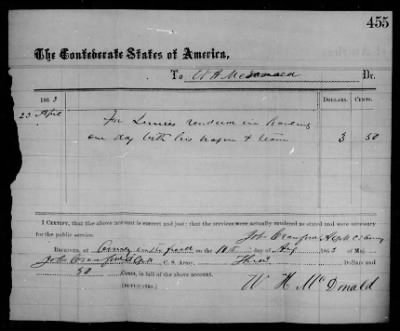 455
The Confederate States of America,
To W H McDonald Dr.
1863 Dollars. Cents.
23 April For Services rendered in hauling
one day with his wagon & team 3 50
I Certify, that the above account is correct and just; that the services were actually rendered as stated and were necessary
for the public service.
Jos Crawford
Received, at the 10th day of Aug 1863 of Maj
Jos Crawford C. S. Army, Three Dollars and
50 Cents, in full of the above account.
(Duplicate.) W H McDonald